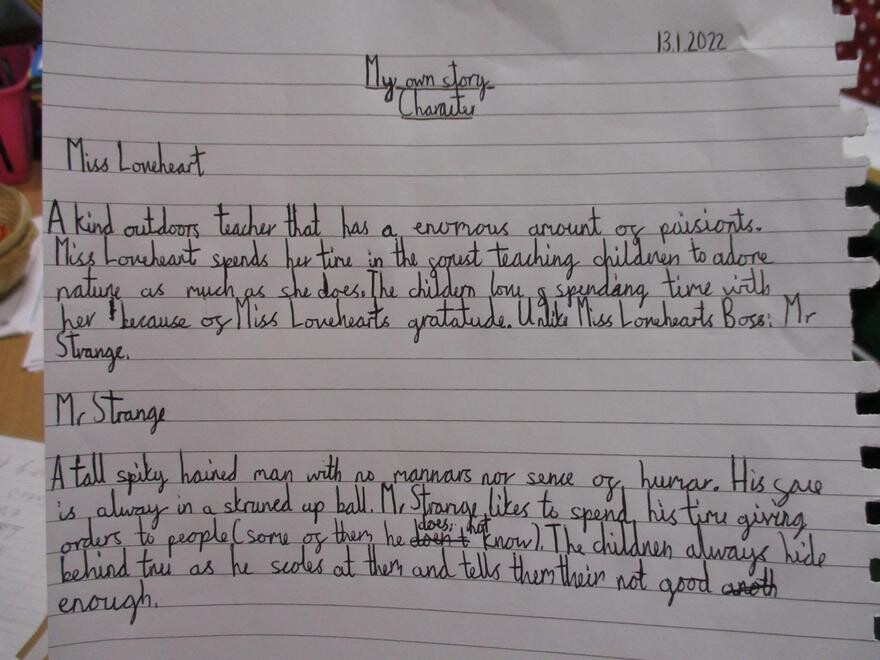 13.1.2022
My own story
Character
Miss Loveheart
A kind outdoors teacher that has a enormous amount of paisionts.
Miss Loveheart spends her time in the forest teaching children to adore
nature as much as she does. The childern love spending time with
her because of Miss Lovehearts gratatude. Unlike Miss Lovehearts Boss: Mr
Strange.
Mr Strange
A tall spiky haired man with no mannars nor sence of humar. His face
is alway in a skruned up ball. Mr Strange likes to spend his time giving
orders to people (some of them he does not know). The children always hide
behind tree as he scoles at them and tells them their not good
enough.